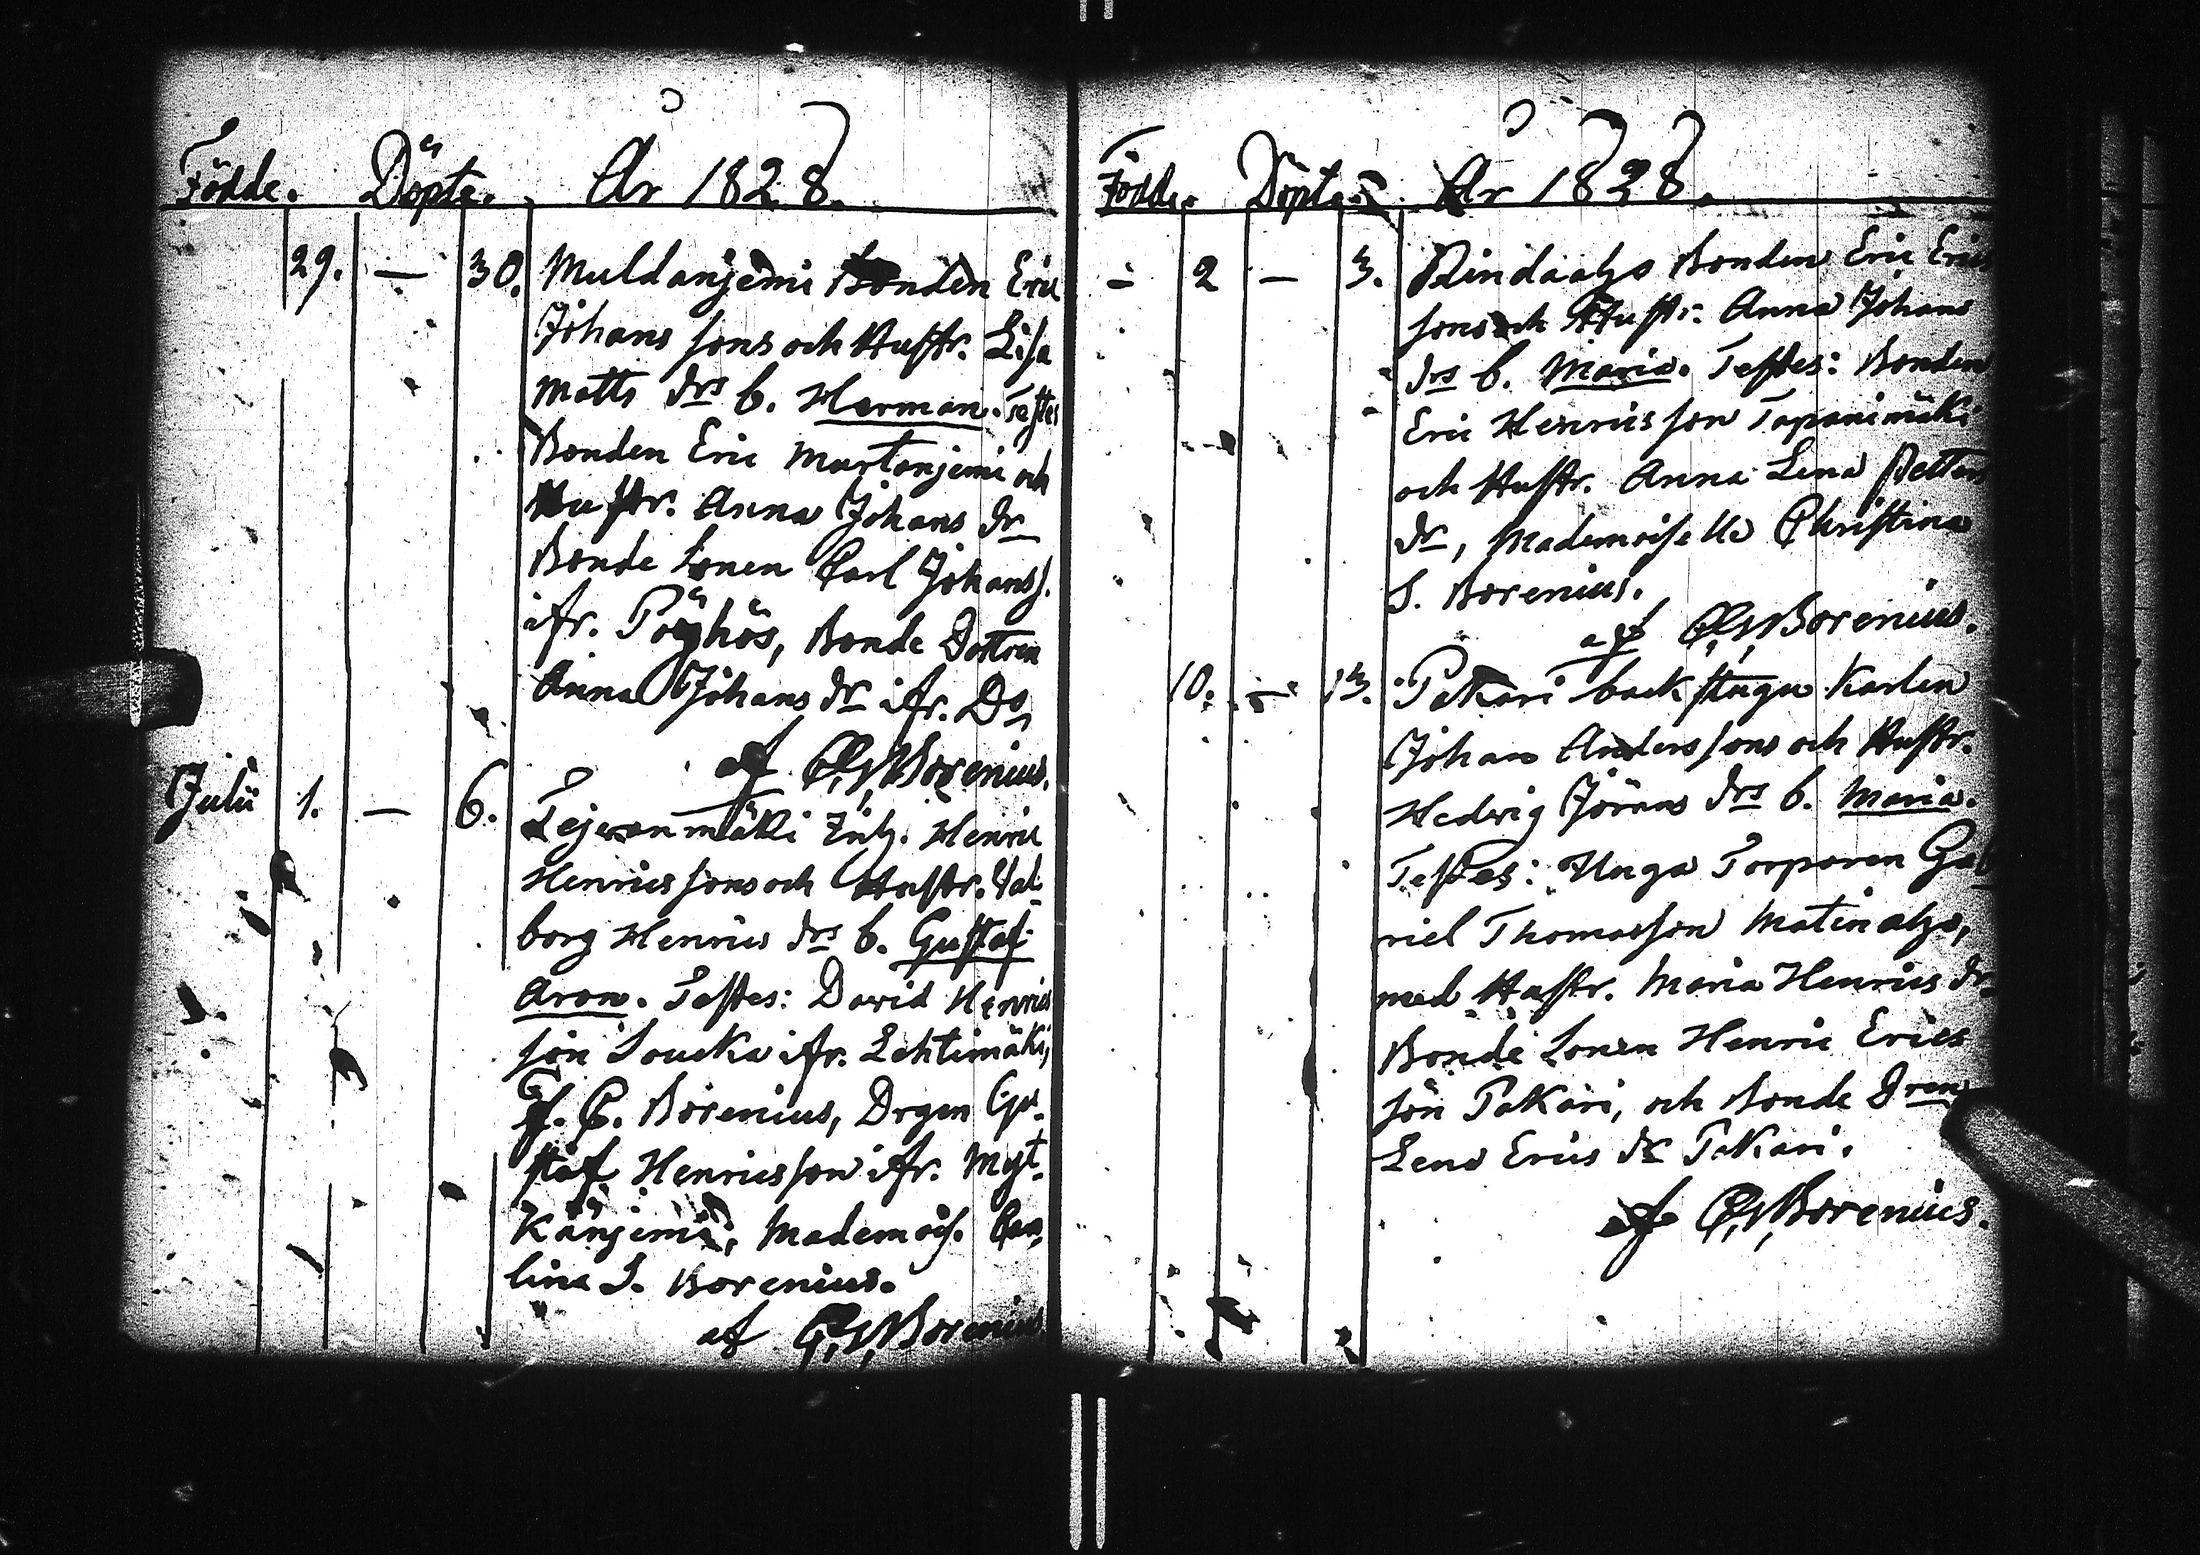 Födde. Döpte. År 1828.
29. — 30. Muldanjemi Bonden Eric
Johans sons och Hustr. Lisa
Matts drs b. Herman. Testes
Bonden Eric Murtonjemi och
Hustr. Anna Johans dr
Bonde Sonen Carl Johans s.
ifr. Pöyhös, Bonde Dottren
Anna Johans dr ifr. Do,
af C. G. Borenius.
Julii 1. — 6. Tejwanmäki Inh. Henric
Henrics sons och Hustr. Val
borg Henrics drs b. Gustaf
Aron. Testes: David Henrics
son Soucka ifr. Lehtimäki,
C. Borenius, Drgen Gu-
staf Henricsson ifr. Myt-
känjemi, Mademois. Ca
lina S. Borenius.
af C. G. Borenius
Födde. Döpte. År 1828.
— 2 — 3. Rindaaho Bonden Eric Erics
sons och Hustr. Anna Johans
drs b. Maria. Testes: Bonden
Eric Henricsson Tapanimäki
och Hustr. Anna Lena Petters
dr, Mademoiselle Christina
S. Borenius.
af C. G. Borenius.
10. — 13. Pekari backstugu Karlen
Johan Anders sons och Hustr.
Hedvig Jörans drs b. Maria.
Testes: Unga Torparen Gab
riel Thomasson Matinaho,
med Hustr. Maria Henrics dr
Bonde Sonen Henric Erics
son Pekari, och Bonde Dren
Lena Erics dr Pekari.
af C. G. Borenius.